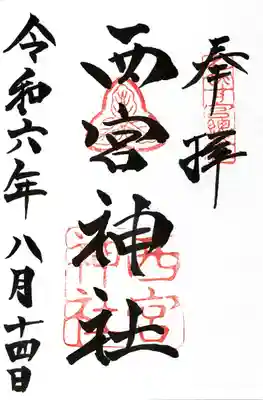 奉拝
西宮神社
西宮
神社
令和六年八月十四日